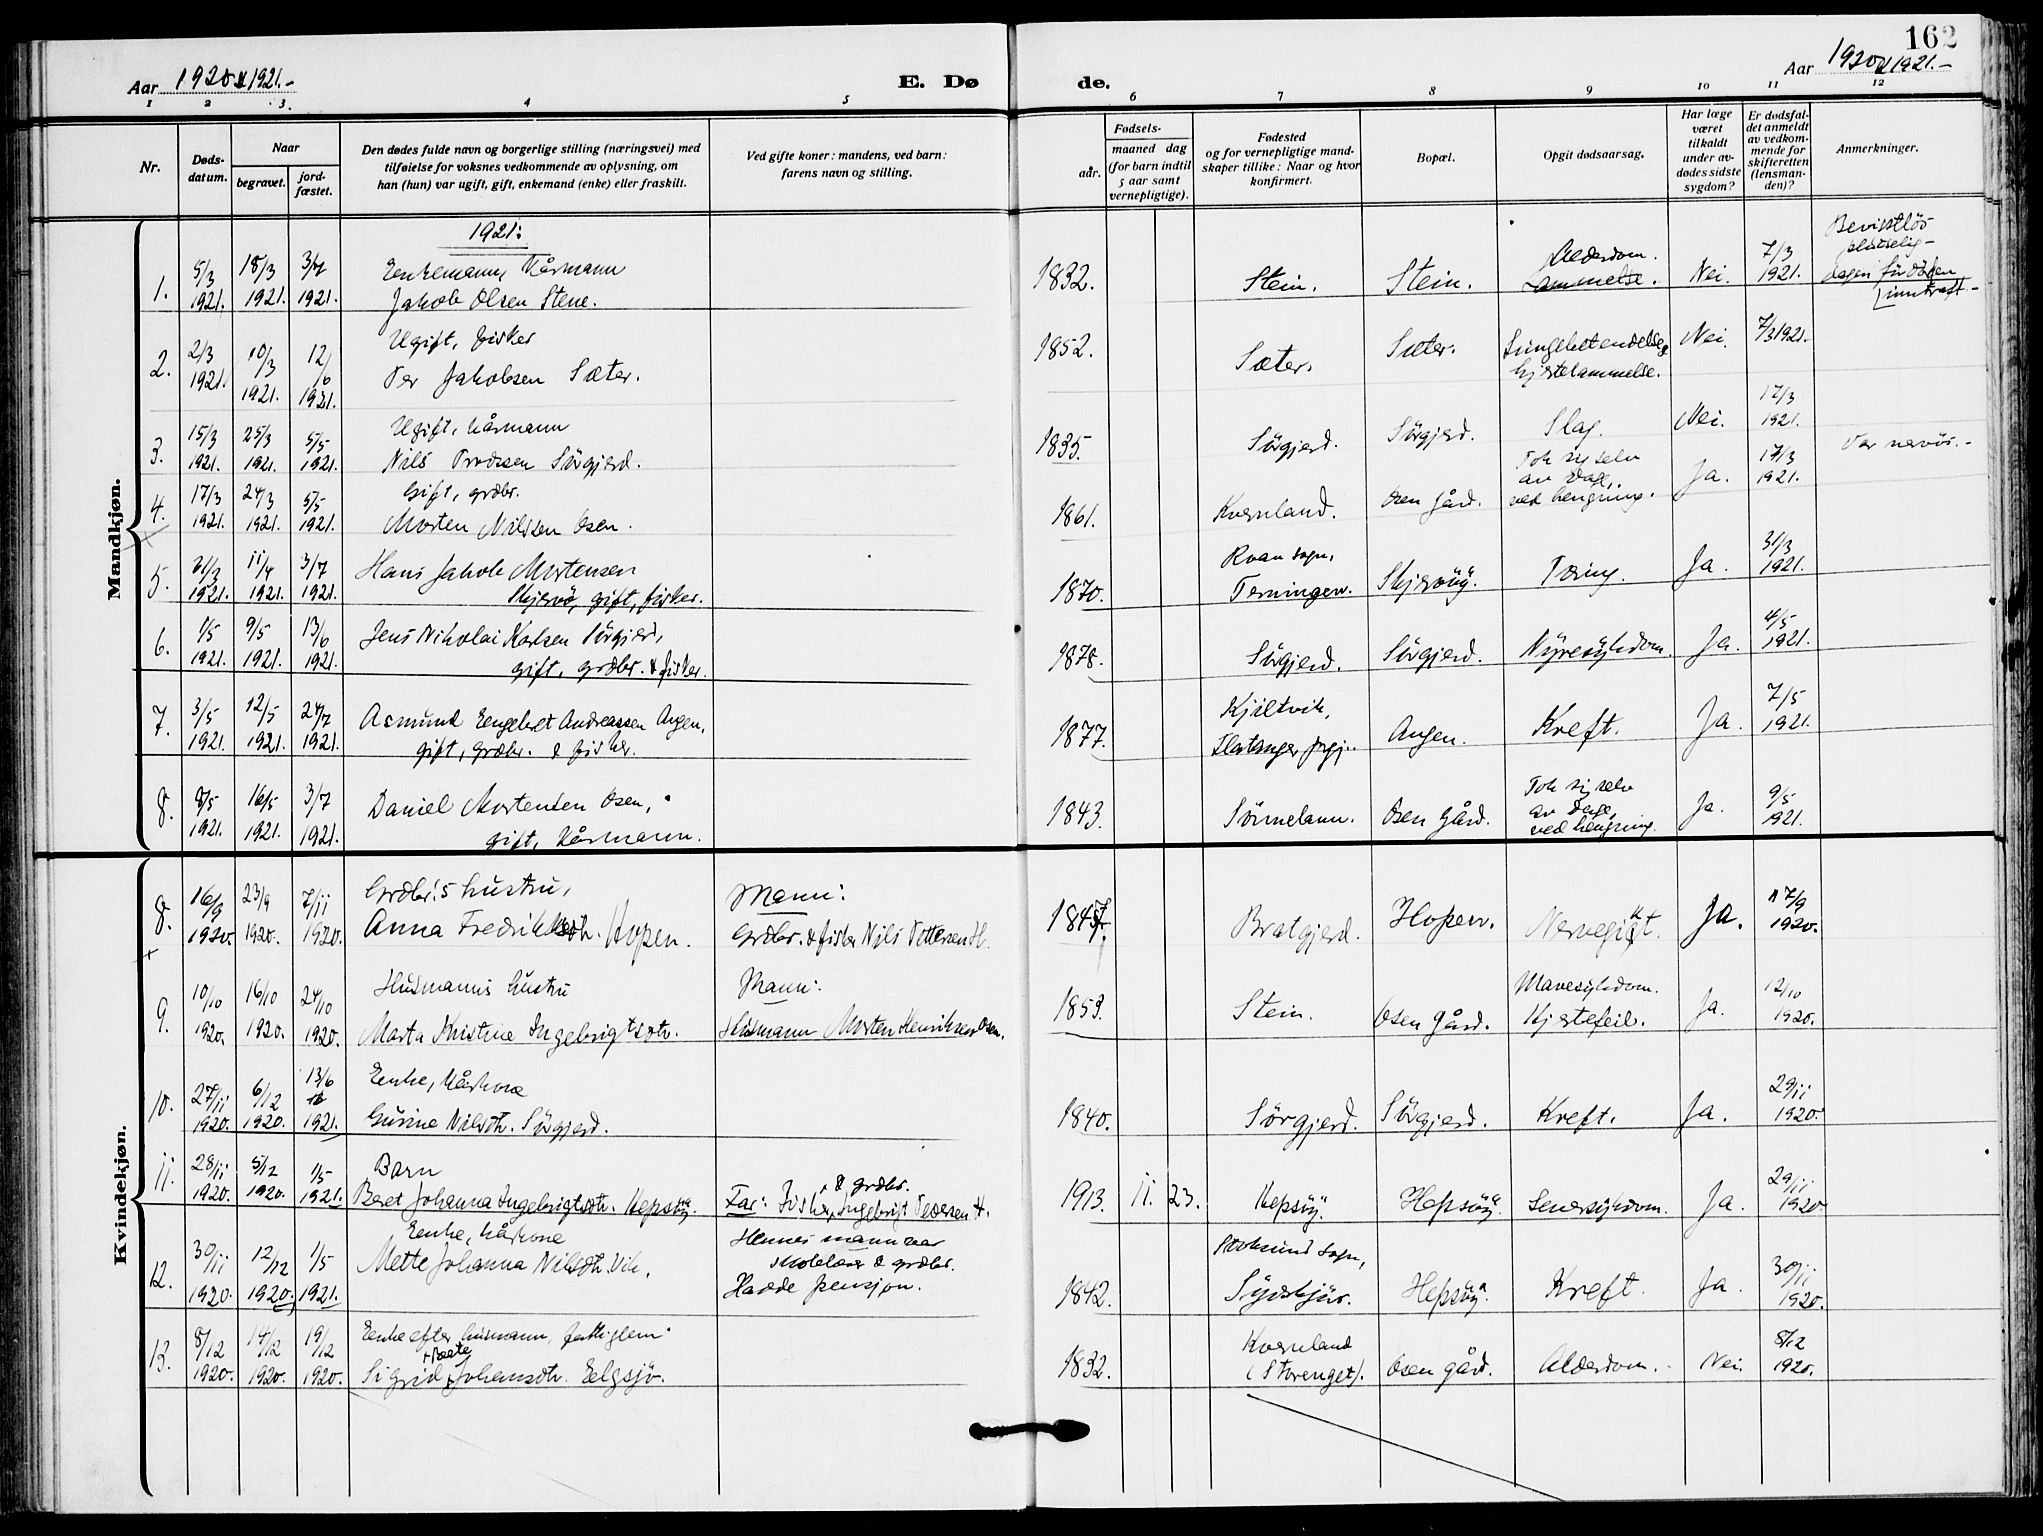 Aar 1920 & 1921.-
E. Dø
de.
162
Aar 1920 & 1921.-
1 2 3. 4 5 6 7 8 9 10 11 12
Nr.
Døds-
datum.
Naar
begravet.
jord-
fæstet.
Den dødes fulde navn og borgerlige stilling (næringsvei) med
tilføielse for voksnes vedkommende av oplysning, om
han (hun) var ugift, gift, enkemand (enke) eller fraskilt.
Ved gifte koner: mandens, ved barn:
farens navn og stilling.
Fødsels-
aar.
maaned dag
(for barn indtil
5 aar samt
vernepligtige).
Fødested
og for vernepligtige mand-
skaper tillike: Naar og hvor
konfirmert.
Bopæl.
Opgit dødsaarsag.
Har læge
været
tilkaldt
under av-
dødes sidste
sygdom?
Er dødsfal-
det anmeldt
av vedkom-
mende for
skifteretten
(lensman-
den)?
Anmerkninger.
Mandkjøn.
1921:
1. 5/3 1921. 18/3 1921. 3/7 1921.
Enkemann, kårmann
Jakob Olsen Stene.
1832. Stein. Stein.
Alderdom.
Lammelse.
Nei. 7/3 1921.
Bevisstløs
plutselig -
dagen før døden
inntraft -
2. 2/3 1921. 10/3 1921. 12/6 1921.
Ugift, fisker
Per Jakobsen Sæter.
1852. Sæter. Sæter.
Lungebetendelse,
hjertelammelse.
Nei. 7/3 1921.
3. 15/3 1921. 25/3 1921. 5/5 1921.
Ugift, kårmann
Nils Pedersen Sørgjerd.
1835. Sørgjerd. Sørgjerd. Slag. Nei. 17/3 1921.
4. 17/3 1921. 24/3 1921. 5/5 1921.
Gift, grdbr.
Morten Nilssen Osen.
1861. Kvernland. Osen gård.
Tok sig selv
av dage,
ved hengning.
Ja. 17/3 1921. Var nervøs.-
5. 21/3 1921. 11/4 1921. 3/7 1921.
Hans Jakob Mortensen
Skjervø, gift, fisker.
1870.
Roan sogn,
Terningen.
Skjervøy. Tæring. Ja. 31/3 1921.
6. 1/5 1921. 9/5 1921. 13/6 1921.
Jens Nikolai Karlsen Sørgjerd,
gift, grdbr. & fisker.
1878. Sørgjerd. Sørgjerd. Nyresykdom. Ja. 4/5 1921.
7. 3/5 1921. 12/5 1921. 24/7 1921.
Asmund Eengelbret Andreassen Angen,
gift, grdbr. & fisker.
1877.
Kjiltvik,
Flatanger prgj..
Angen. Kreft. Ja. 7/5 1921.
8. 8/5 1921. 16/5 1921. 3/7 1921.
Daniel Mortensen Osen,
gift, kårmann.
1843. Sørmeland. Osen gård.
Tok sig selv
av dage,
ved hengning.
Ja. 9/5 1921.
Kvindekjøn.
8. 16/9 1920. 23/9 1920. 7/11 1920.
Grdbr.s hustru,
Anna Fredriksdtr. Hopen.
Mann:
Grdbr. & fisker Nils Pettersen H.
1847. Bratgjerd. Hopen. Nervegikt. Ja. 17/9 1920.
9. 10/10 1920. 16/10 1920. 24/10 1920.
Husmanns hustru
Marta Kristine Ingebrigtsdtr.
Mann:
Husmann Morten Henriksen Osen.
1853. Stein. Osen gård.
Mavesykdom.
Hjertefeil.
Ja. 12/10 1920.
10. 27/11 1920. 6/12 1920. 13/6 1921.
Eenke, kårkone
Gurine Nilsdtr. Sørgjerd.
1840. Sørgjerd. Sørgjerd. Kreft. Ja. 29/11 1920.
11. 28/11 1920. 5/12 1920. 1/5 1921.
Barn
Beret Johanna Ingebrigtsdtr. Hepsøy.
Far: Fisker & grdbr. Ingebrigt Pedersen H.
1913. 11. 23. Hepsøy. Hepsøy. Senesykdom. Ja. 29/11 1920
12. 30/11 1920. 12/12 1920. 1/5 1921.
Eenke, kårkone
Mette Johanna Nilsdtr. Vik.
Hennes mann var
skolelærer & grdbr.
Hadde pensjon.
1842.
Stoksund sogn,
Sydskjør.
Hepsøy. Kreft. Ja. 30/11 1920.
13. 8/12 1920. 14/12 1920. 19/12 1920.
Eenke efter husmann, fattiglem.
Sigrid Beate Johansdtr. Eelgsjø.
1832.
Kvernland
(Storenget).
Osen gård. Alderdom. Nei. 8/12 1920.